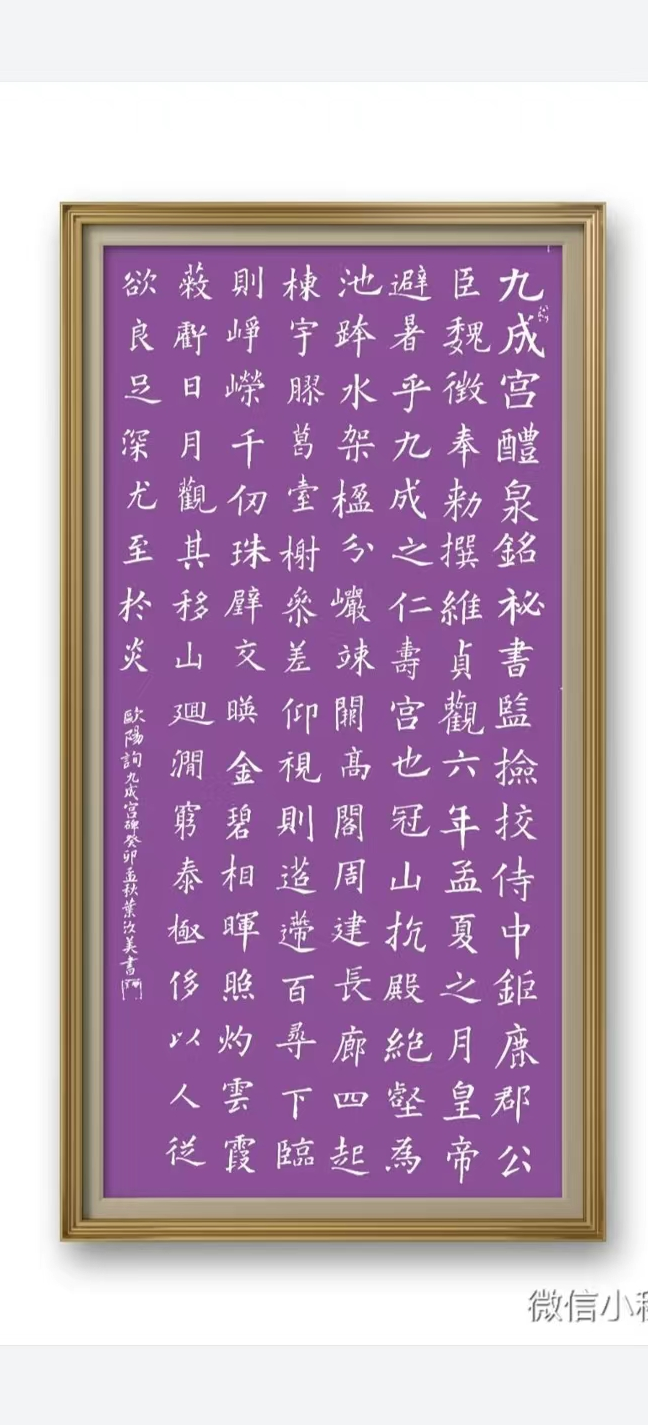 九成宫醴泉銘祕書監撿挍侍中鉅鹿郡公
臣魏徵奉勑撰維貞觀六年孟夏之月皇帝
避暑乎九成之仁壽宫也冠山抗殿絕壑為
池跨水架楹分巖竦闕高閣周建長廊四起
棟宇膠葛臺榭叅差仰視則迢遰百尋下臨
則崢嶸千仞珠璧交暎金碧相暉照灼雲霞
蔽虧日月觀其移山迴澗窮泰極侈以人從
欲良足深尤至於炎
歐陽詢九成宫碑癸卯孟秋葉汝美書
微信小程